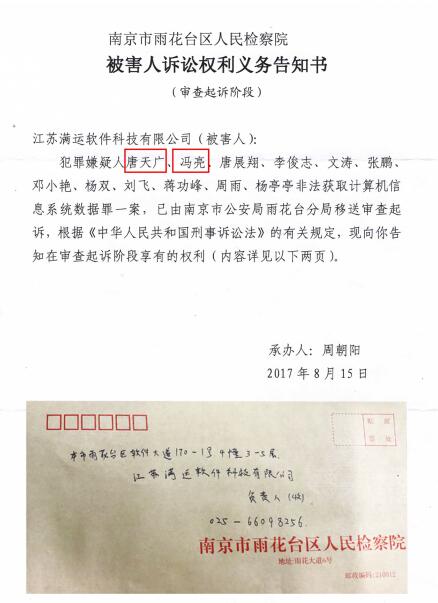 南京市雨花台区人民检察院
被害人诉讼权利义务告知书
（审查起诉阶段）
江苏满运软件科技有限公司（被害人）：
犯罪嫌疑人唐天广、冯亮、唐展翔、李俊志、文涛、张鹏、
邓小艳、杨双、刘飞、蒋功峰、周雨、杨亭亭非法获取计算机信
息系统数据罪一案，已由南京市公安局雨花台分局移送审查起
诉，根据《中华人民共和国刑事诉讼法》的有关规定，现向你告
知在审查起诉阶段享有的权利（内容详见以下两页）。
承办人：周朝阳
2017年8月15日
贴邮
票处
本市雨花台区软件大道170-1号4幢3-5层
江苏满运软件科技有限公司
负责人（收）
025-66098256.
南京市雨花台区人民检察院
地址:雨花大道6号
邮政编码:210012